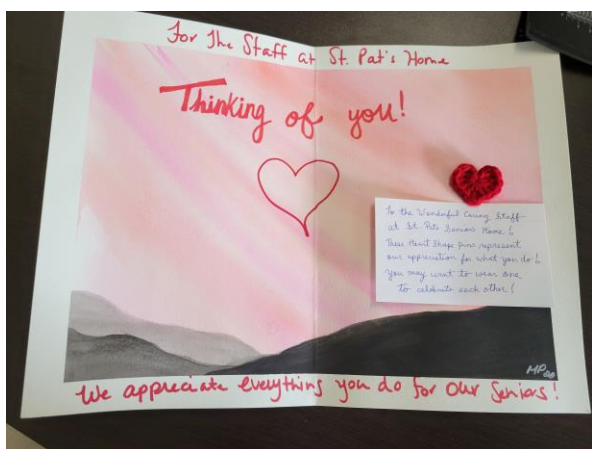 For The Staff at St. Pat's Home
Thinking of you!
To the Wonderful Caring Staff
at St. Pats Seniors Home!
These Heart Shape pins represent
our appreciation for what you do!
You may want to wear one
to celebrate each other!
MP
We appreciate everything you do for our Seniors!